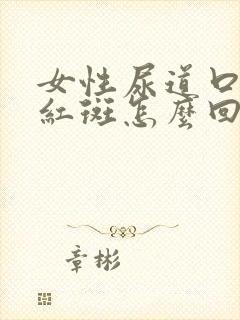 女性尿道口
紅斑怎麼回
章彬